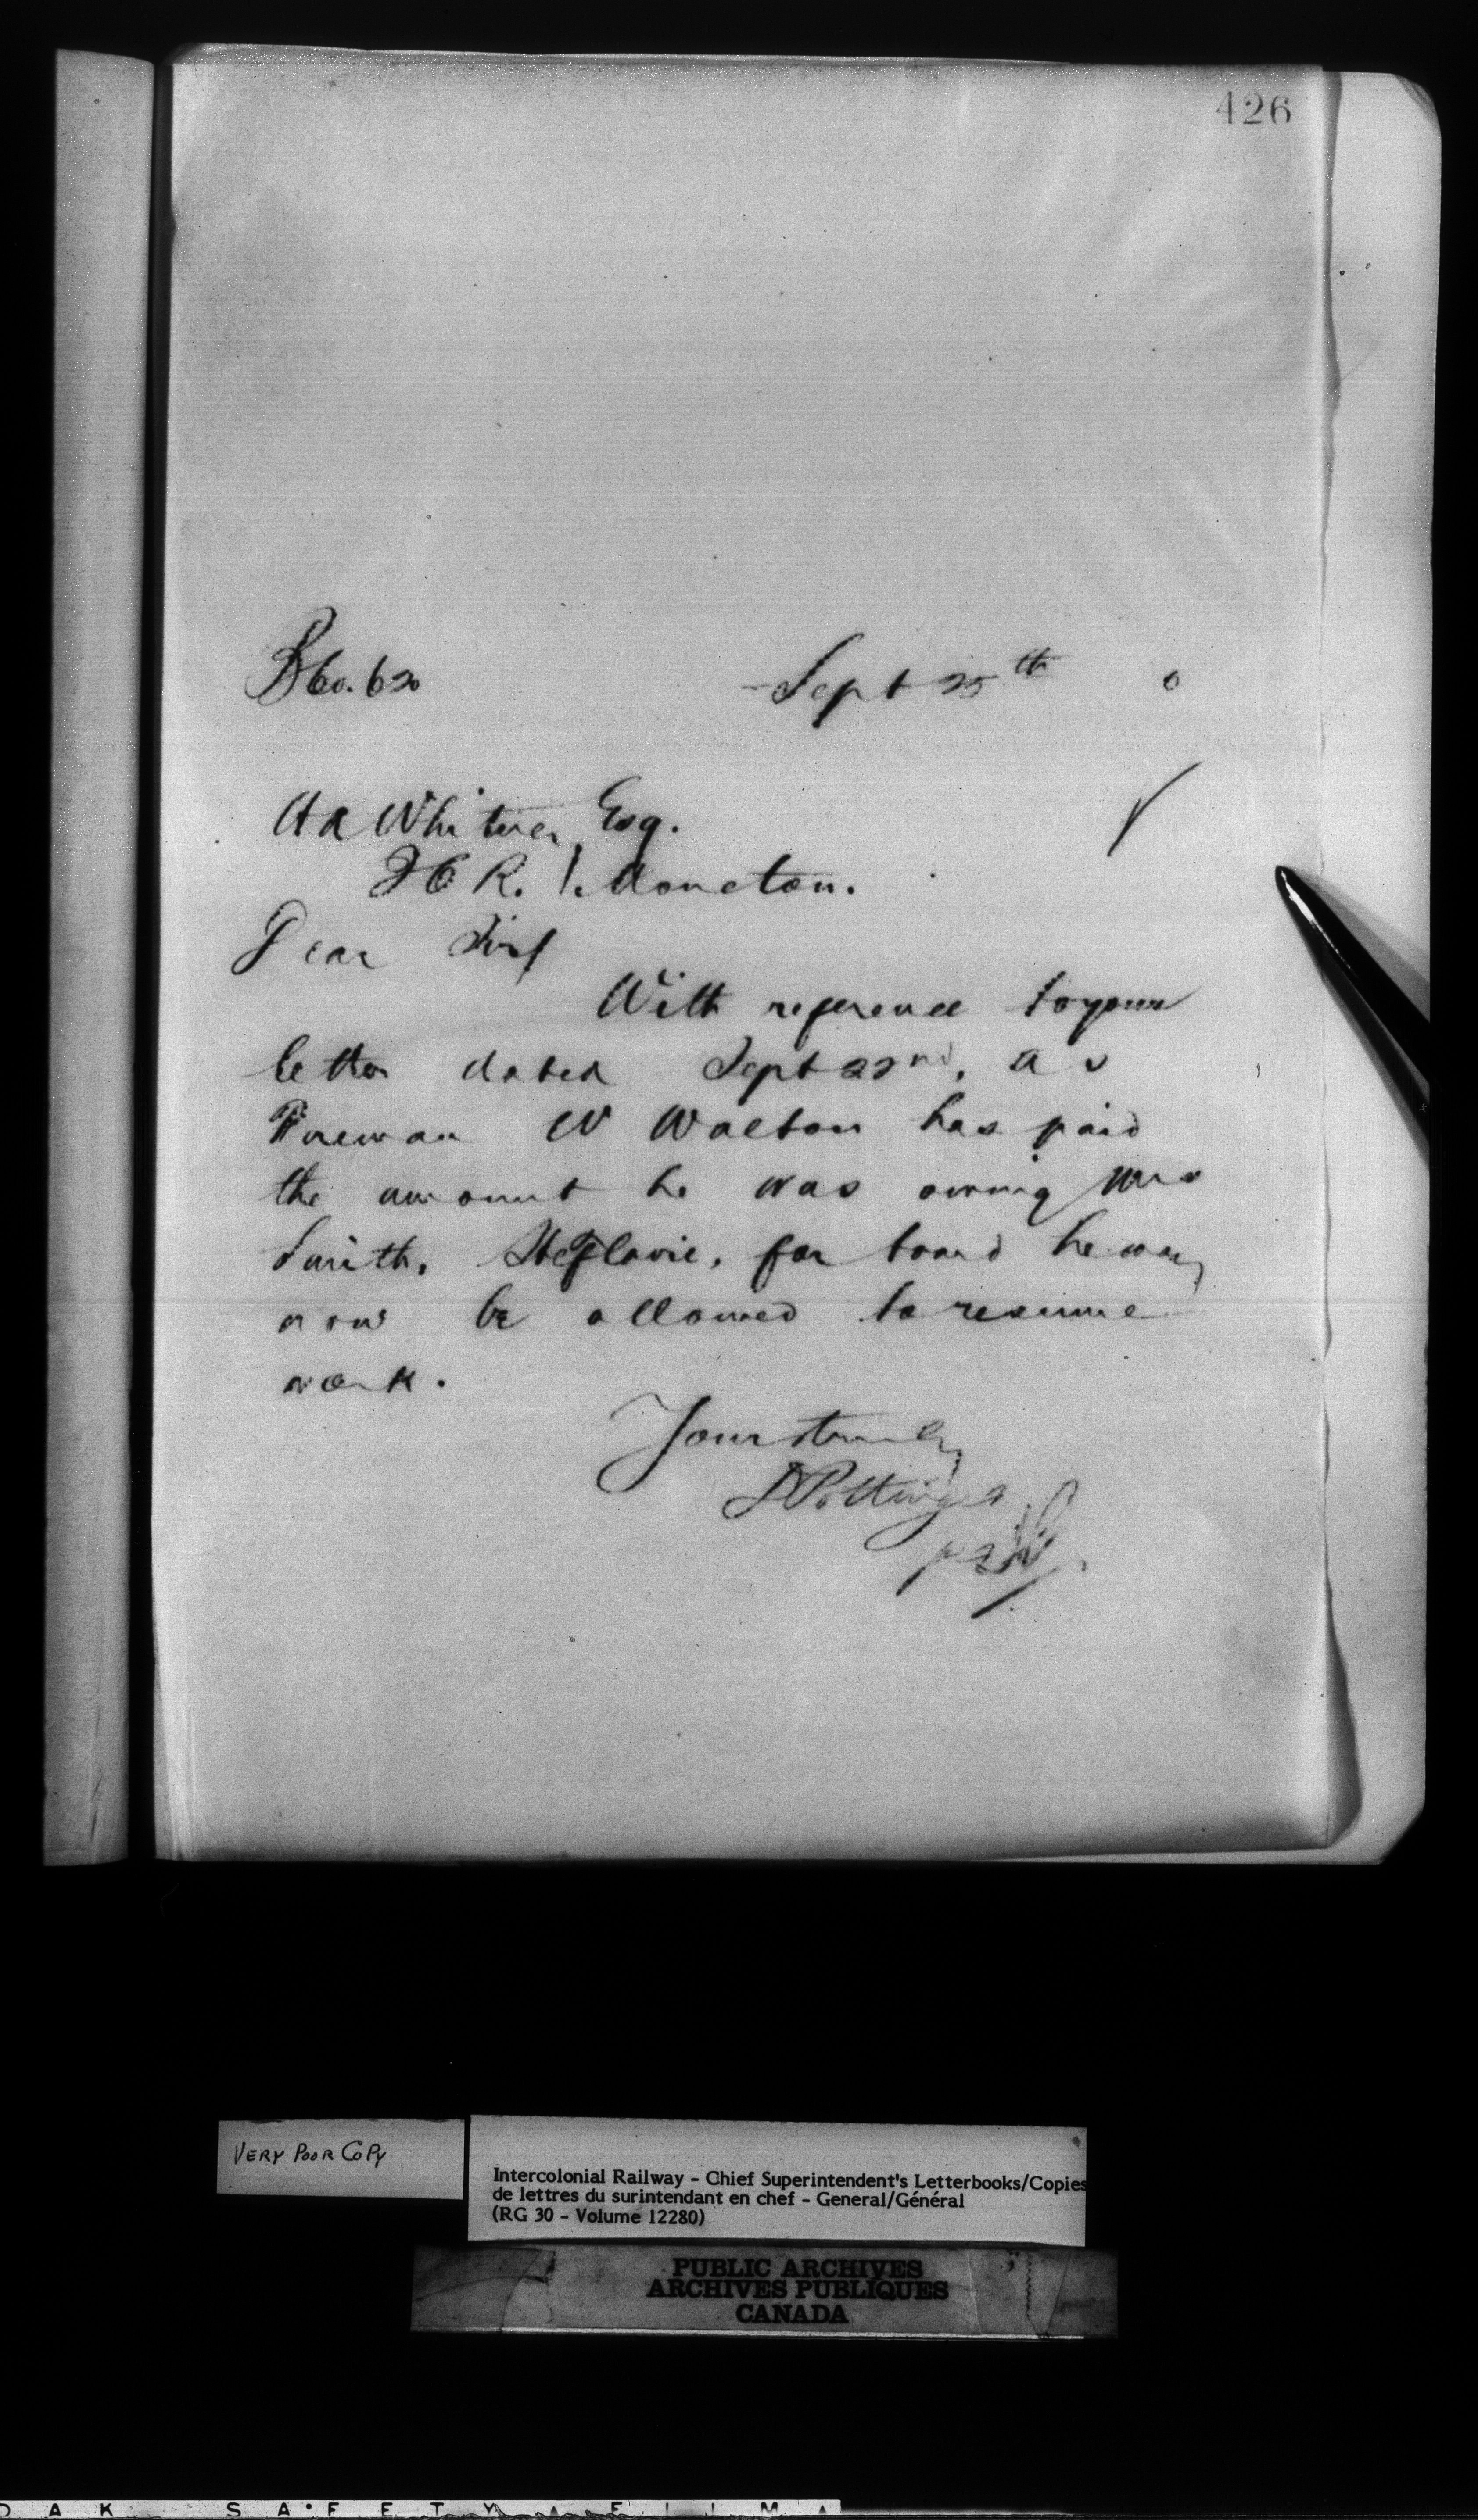 426
B60.620 Sept 25th 0
H A Whitney Esq.
I C R. Moncton.
Dear Sir/
With reference to your
letter dated Sept 22nd, as
Fireman W Walton has paid
the amount he was owing Mrs
Smith, Ste Flavie, for board he may
now be allowed to resume
work.
Yours truly
D Pottinger
VERY POOR COPY
Intercolonial Railway - Chief Superintendent's Letterbooks/Copies
de lettres du surintendant en chef - General/Général
(RG 30 - Volume 12280)
PUBLIC ARCHIVES
ARCHIVES PUBLIQUES
CANADA
D A K S A F E T Y F I L M A